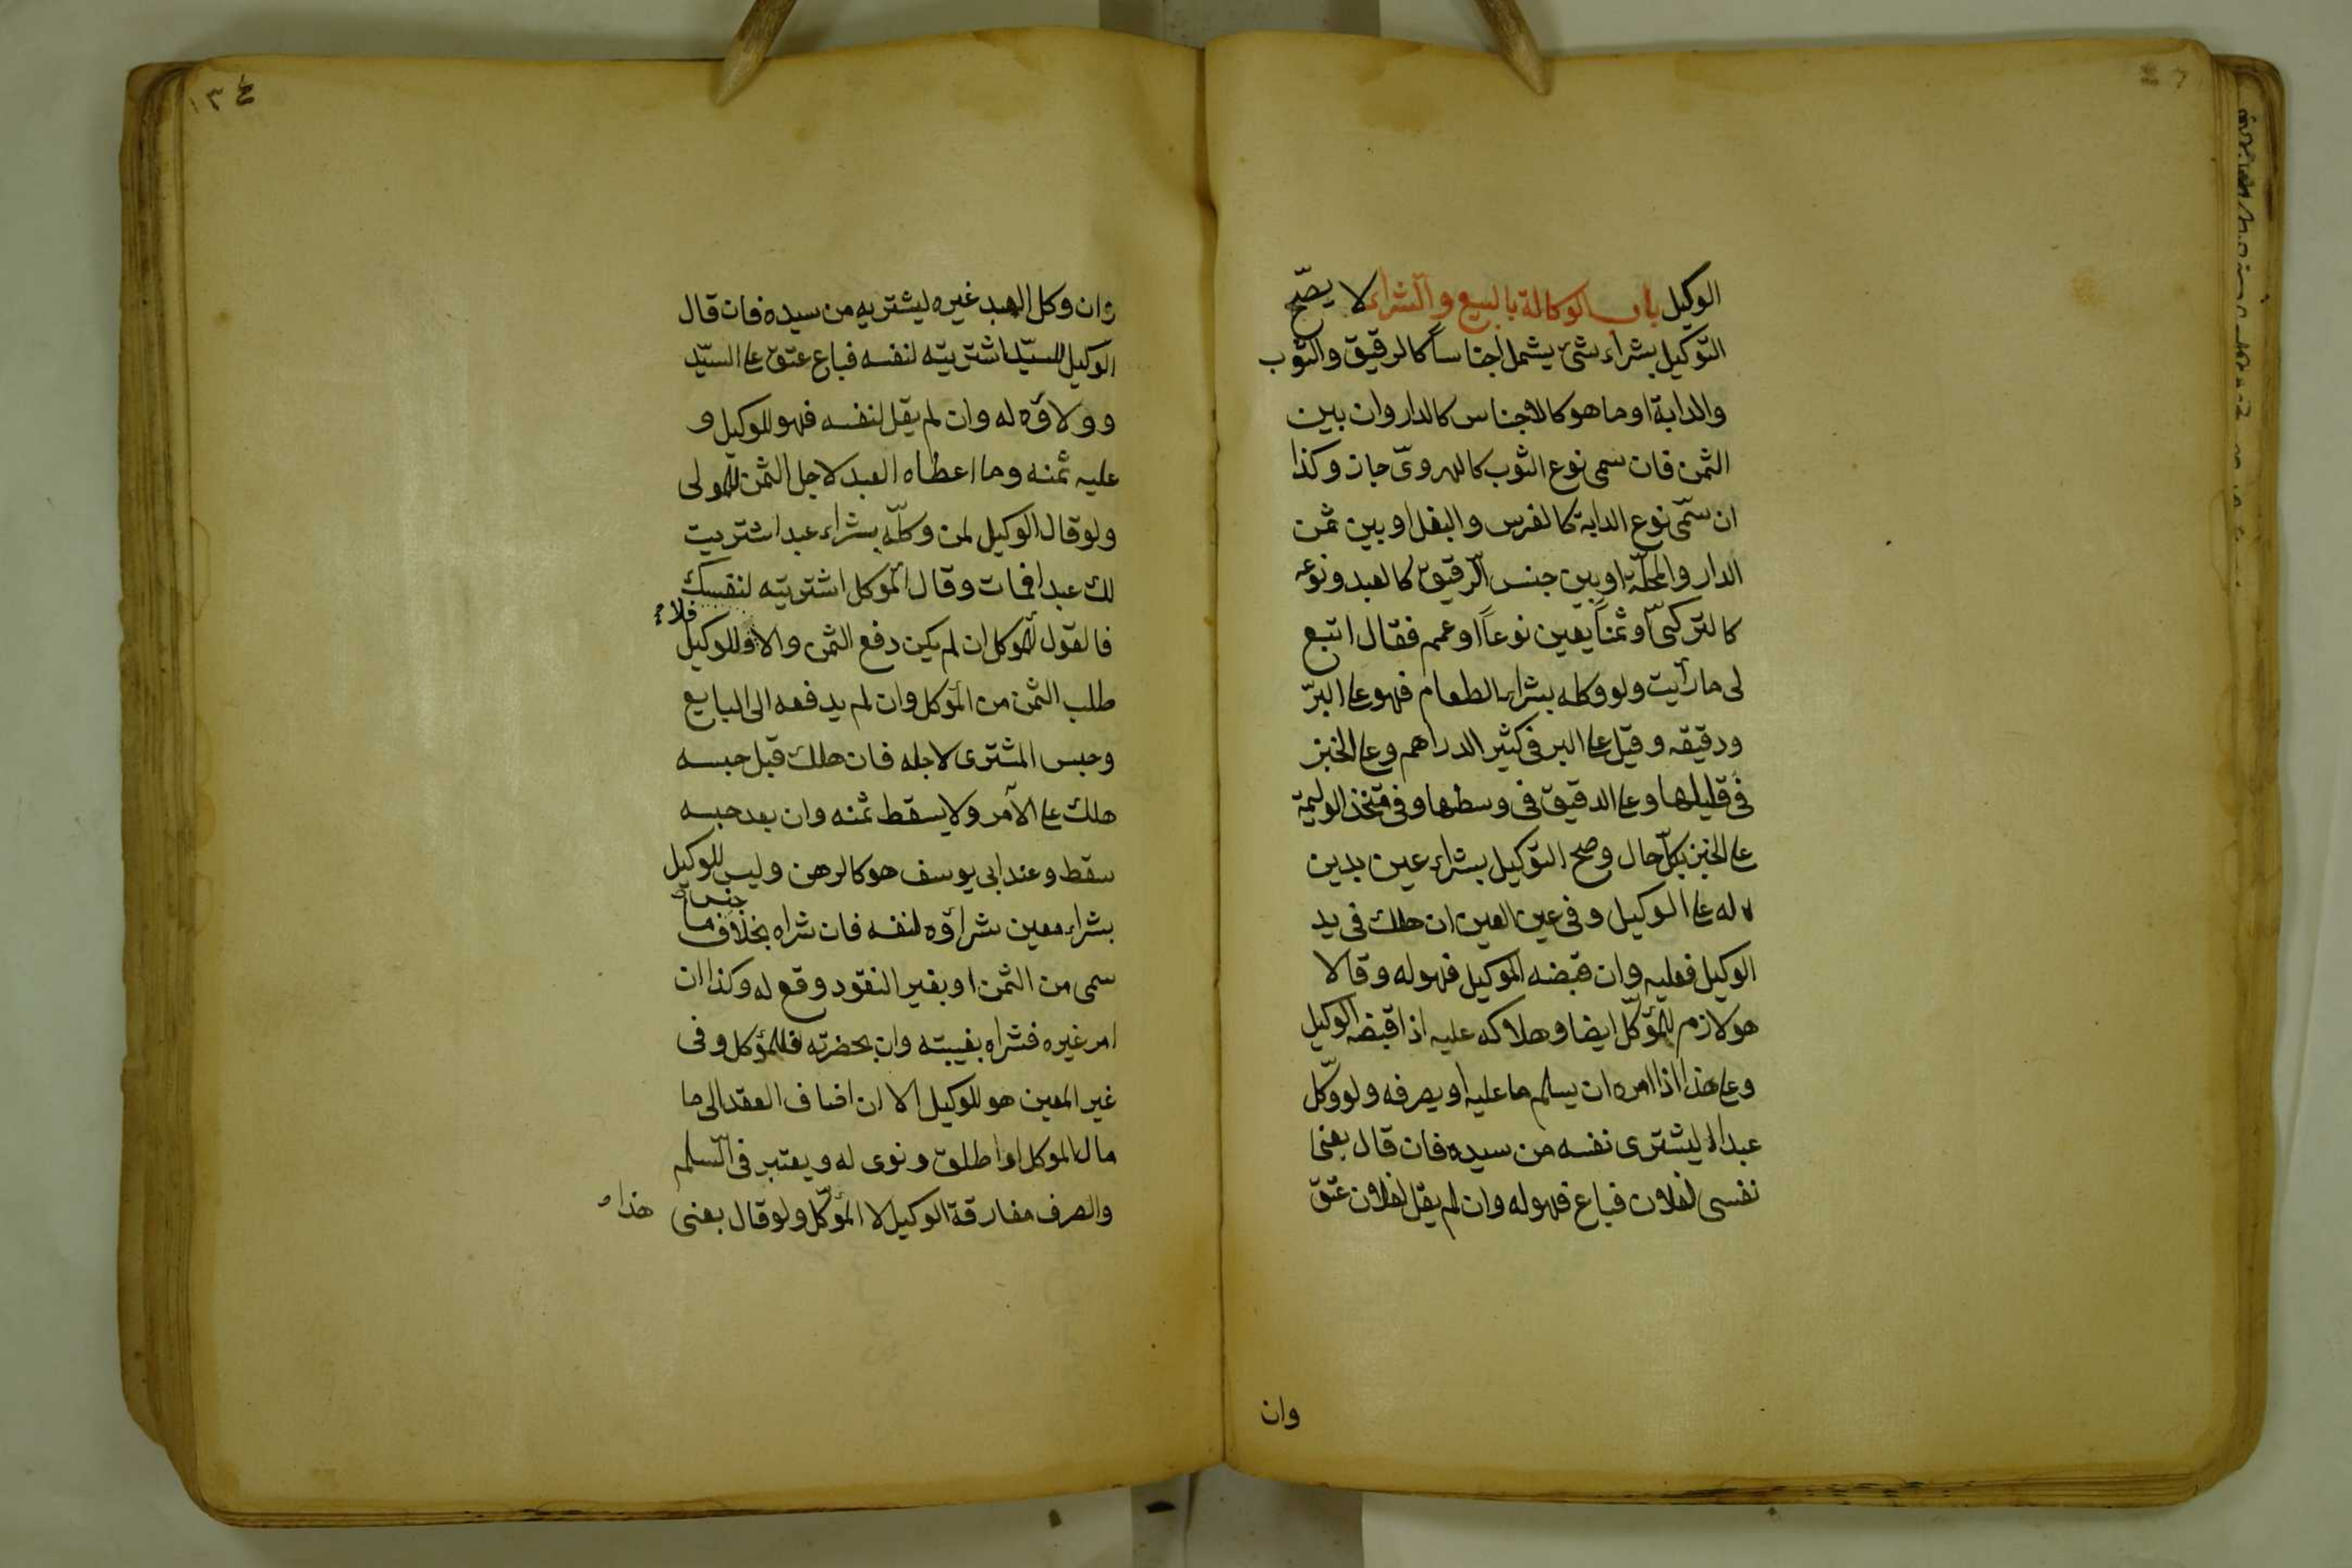 الوكيل باب الوكالة بالبيع والشراء لا يصّح
التوكيل بشراء شئ يشمل اجناساً كالرقيق والثوب
والدابة او ما هو كالاجناس كالدار وان بين
الثمن فان سمى نوع الثوب كالهروىّ جاز وكذا
ان سمّى نوع الدابة كالفرس والبغل او بين ثمن
الدار والمحلّة او بين جنس الرقيق كالعبد ونوعه
كالتركىّ او ثمناً يعين نوعاً او عمم فقال ابتع
لى ما رأيت ولو وكله بشراء الطعام فهو على البرّ
ودقيقه وقيل على البر فى كثير الدراهم وعلى الخبز
فى قليلها وعلى الدقيق فى وسطها وفى متخذ الوليمة
على الخبز بكلّ حال وصح التوكيل بشراء عين بدين
له على الوكيل وفى غير العين ان هلك فى يد
الوكيل فعليه وان قبضه الموكيل فهو له وقالا
هو لازم للمؤكّل ايضا وهلاكه عليه اذا قبضه الوكيل
وعلى هذا اذا امره ان يسلم ما عليه او يصرفه ولو وكّل
عبدا ليشترى نفسه من سيده فان قال بعنى
نفسى لفلان فباع فهو له وان لم يقل لفلان عتق
وان
١٣٤
وان وكل العبد غيره ليشتريه من سيده فان قال
الوكيل للسيّد اشتريته لنفسه فباع عتق على السيّد
وولاؤه له وان لم يقل لنفسه فهو للوكيل و
عليه ثمنه وما اعطاه العبد لاجل الثمن للمولى
ولو قال الوكيل لمن وكلّه بشراء عبد اشتريت
لك عبدا فمات وقال المؤكل اشتريته لنفسك
فالقول للمؤكل ان لم يكن دفع الثمن والا فللوكيل
طلب الثمن من المؤكل وان لم يدفعه الى البايع
وحبس المشترى لاجله فان هلك قبل حبسه
هلك على الآمر ولا يسقط ثمنه وان بعد حبسه
سقط وعند ابى يوسف هو كالرهن وليس للوكيل
بشراء معين شراؤه لنفسه فان شراه بخلاف جنس ما
سمى من الثمن او بغير النقود وقع له وكذا ان
امر غيره فشراه بغيبته وان بحضرته فللمؤكل وفى
غير المعين هو للوكيل الا ان اضاف العقد الى ما
مال الموكل او اطلق ونوى له ويعتبر فى السّلم
والصرف مفارقة الوكيل لا المؤكّل ولو قال بعنى هذا